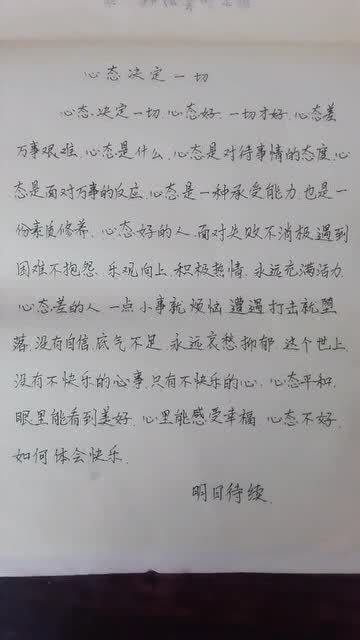 心态决定一切
心态决定一切.心态好.一切才好.心态差
万事艰难.心态是什么.心态是对待事情的态度.心
态是面对万事的反应.心态是一种承受能力.也是一
份素质修养.心态好的人.面对失败不消极.遇到
困难不抱怨.乐观向上.积极热情.永远充满活力.
心态差的人.一点小事就烦恼.遭遇打击就堕
落.没有自信.底气不足.永远哀愁抑郁.这个世上.
没有不快乐的心事.只有不快乐的心.心态平和.
眼里能看到美好.心里能感受幸福.心态不好.
如何体会快乐.
明日待续.